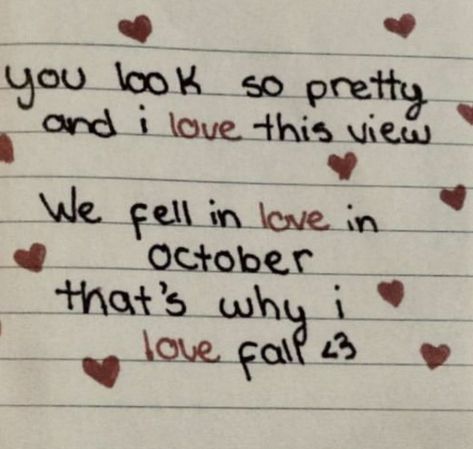 you look so pretty
and i love this view
We fell in love in
october
that's why i
love fall <3